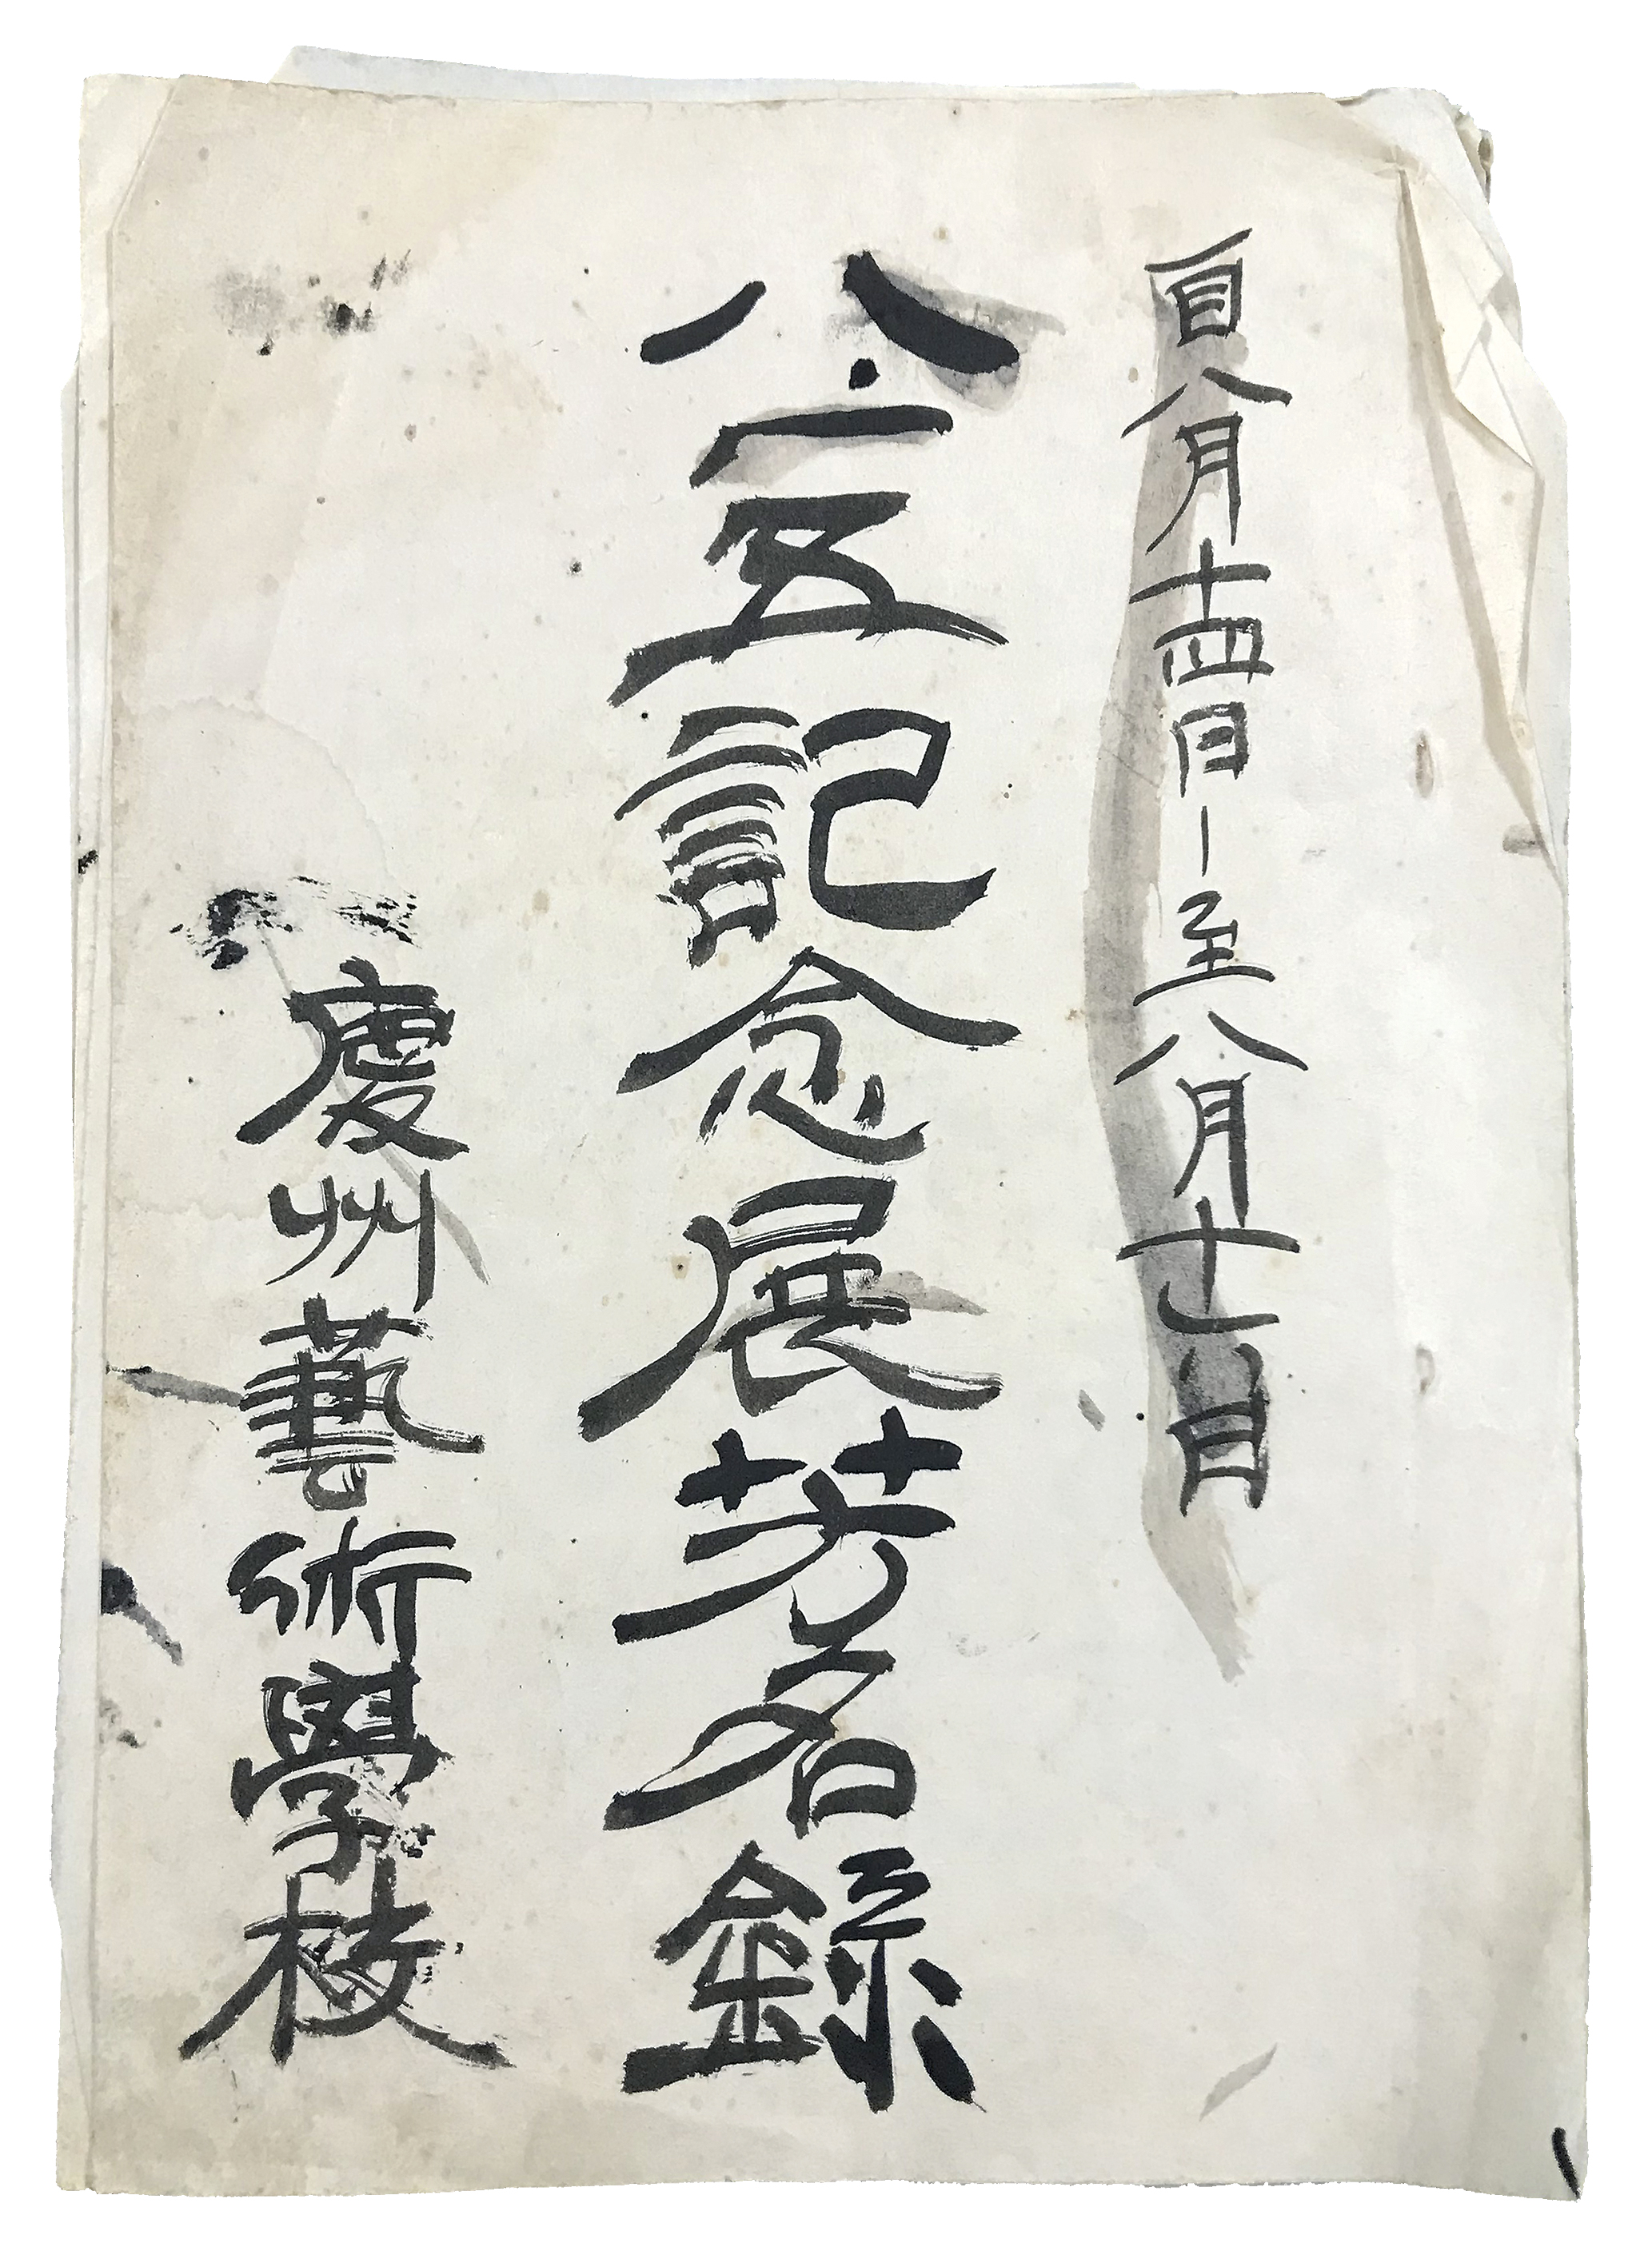 自八月十四日-至八月十七日
八·一五記念展芳名錄
慶州藝術學校